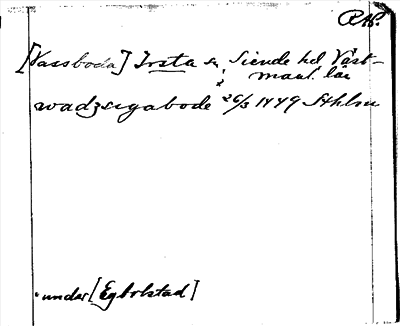 RAp.
[Vassboda] Irsta sn, Siende hd Väst-
manl. län
wadzsigabode 26/3 1449 Sthlm
under [Egbolstad]